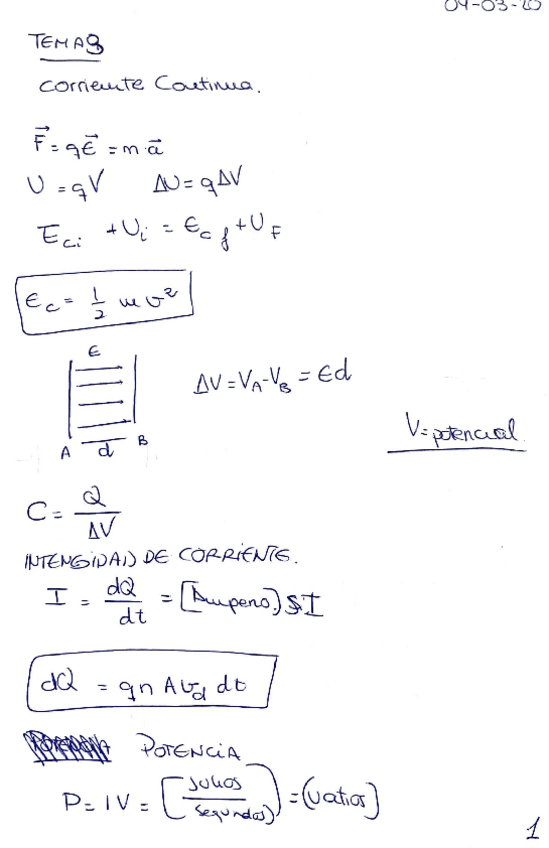 04-03-20
TEMA 8
Corriente Continua.
F⃗ = qE⃗ = m·a⃗
U = qV ΔU = qΔV
E_ci + U_i = E_cf + U_F
E_c = 1/2 m v²
E
ΔV = V_A - V_B = Ed
A d B
V = potencial
C = Q/ΔV
INTENSIDAD DE CORRIENTE.
I = dQ/dt = [Amperio] SI
dQ = qn A v_d dt
POTENCIA
P = IV = [Julios/segundos] = (Vatios]
1